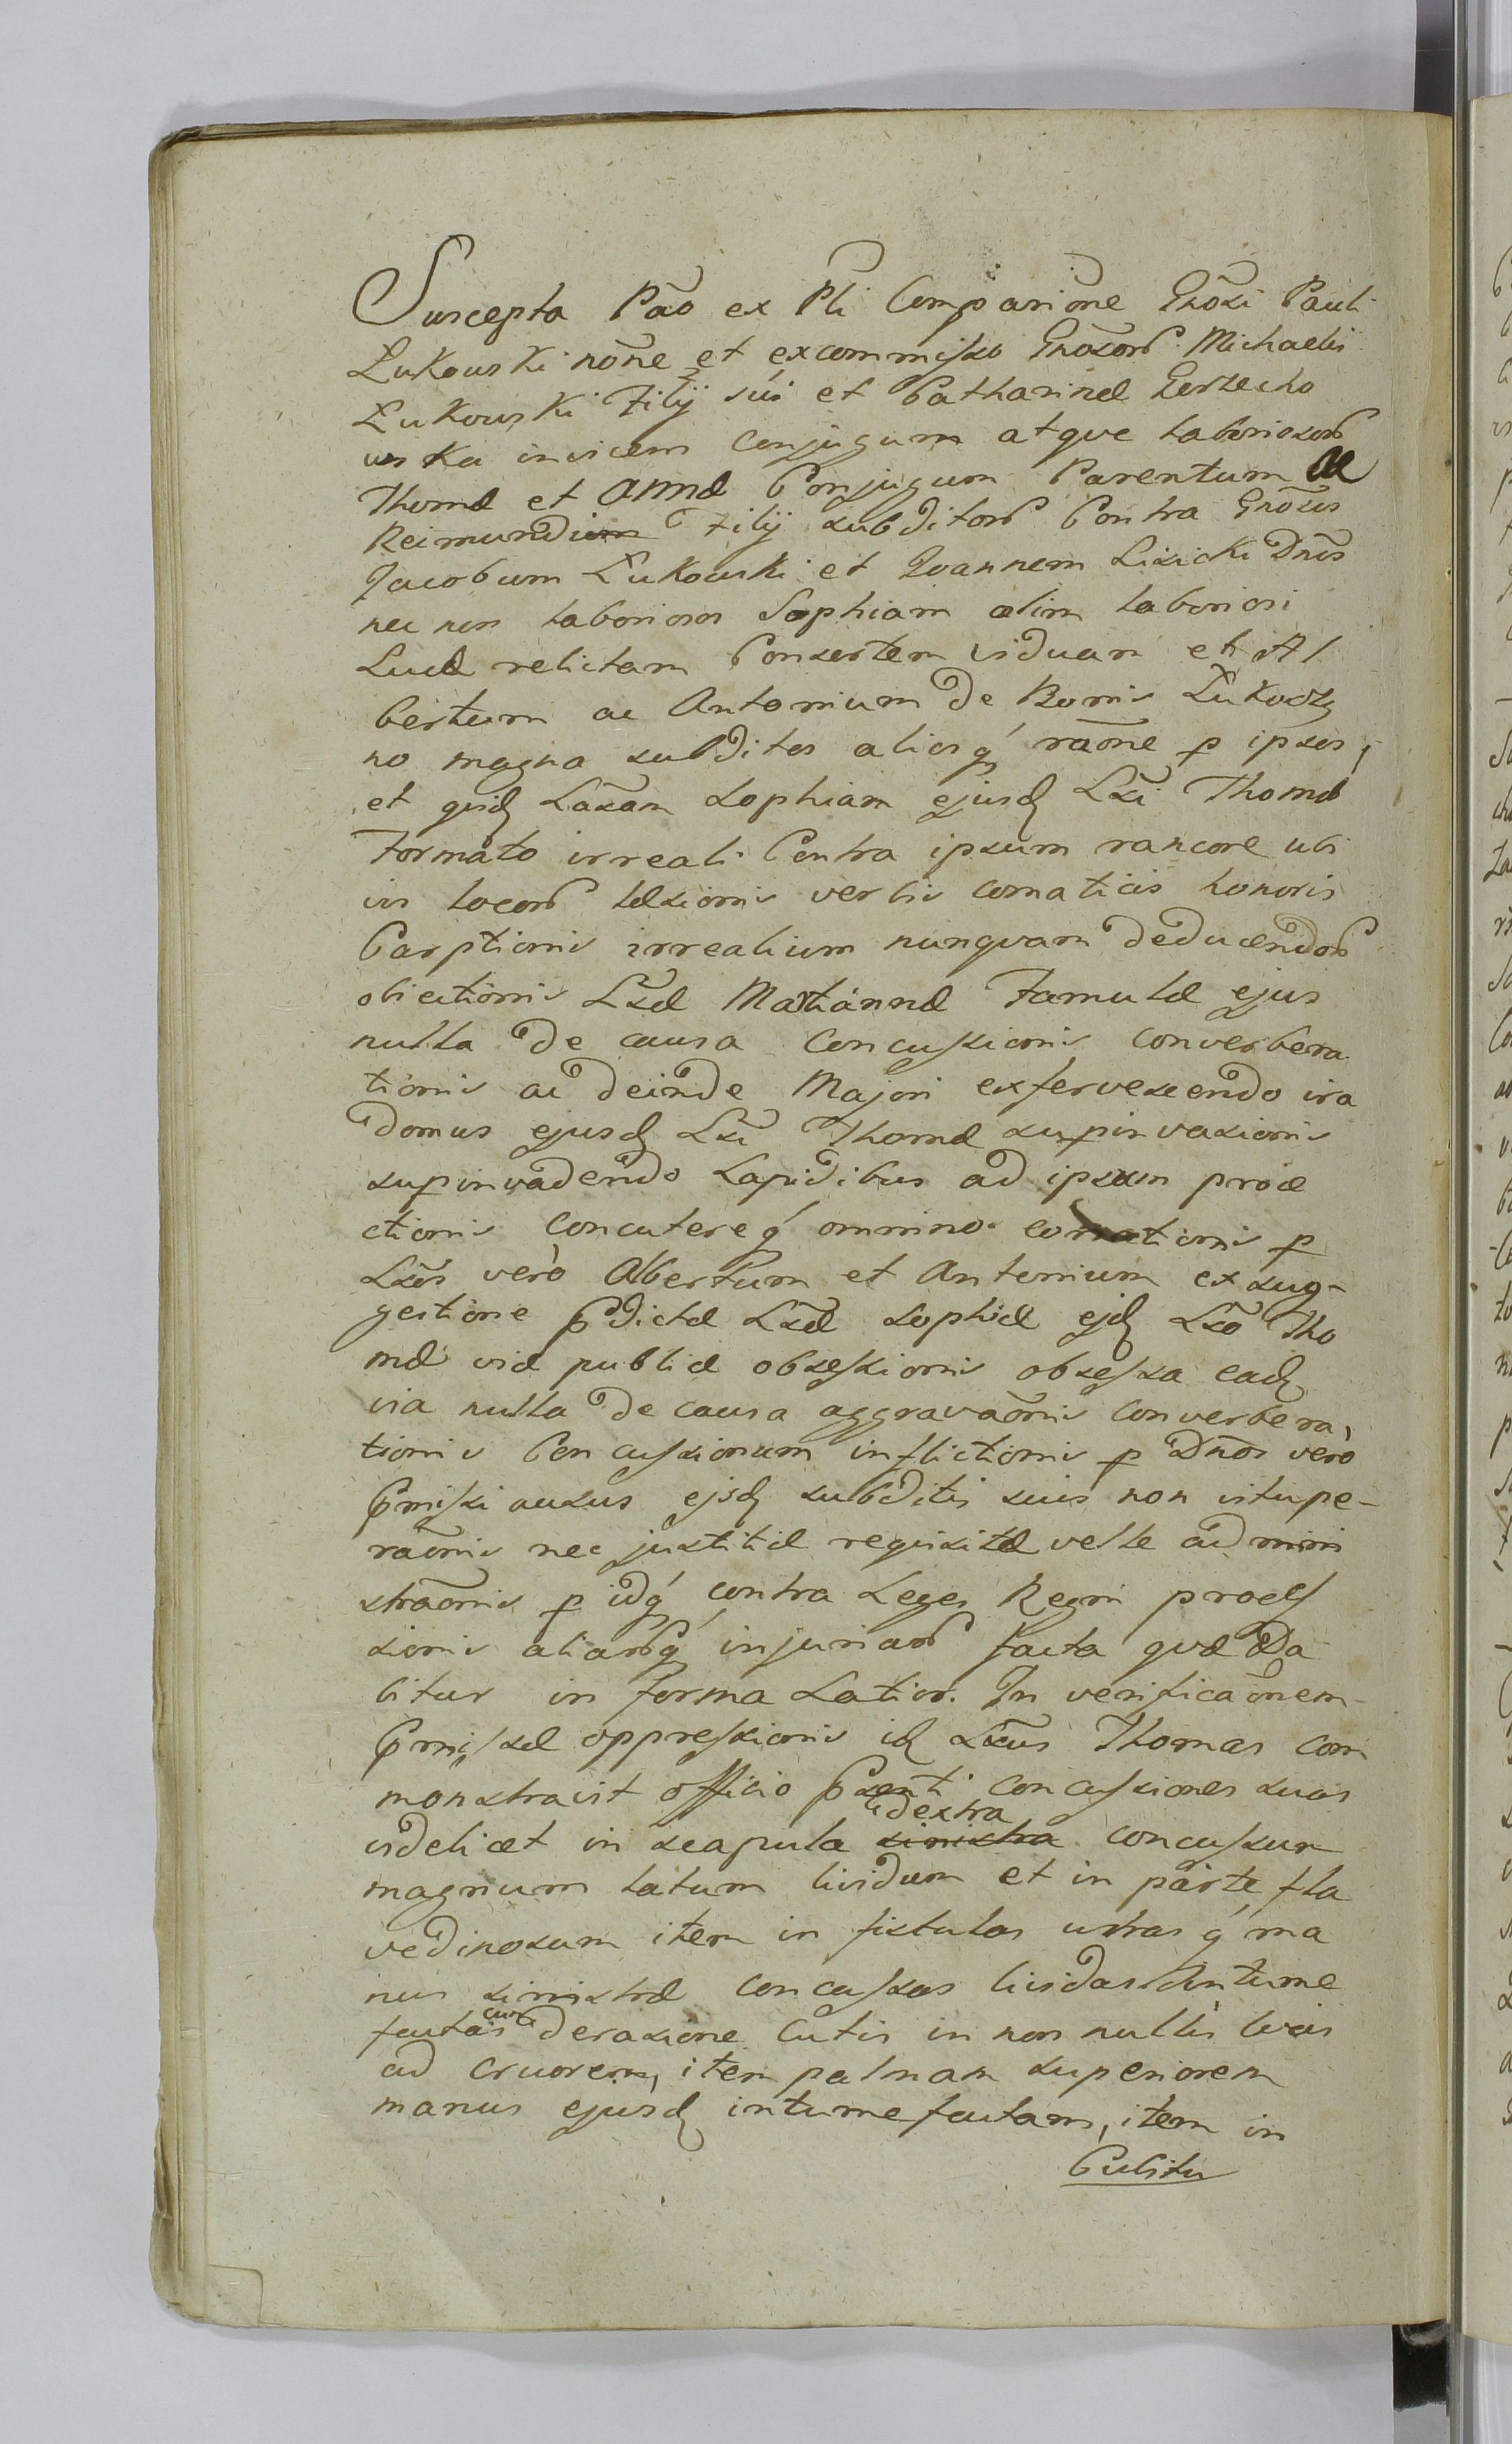 Suscepta Pão ex Pli Comparinõe Gnõsi Pauli
Łukowski nõne et ex commisso Gnõsorꝝ Michaelis
Łukowski Filij sui et Catharinæ Gerzecho
wska invicem conjugum atqve laboriosorꝝ
Thomæ et Annæ Conjugum Parentum ac
Reimundi Filij subditorꝝ Contra Gnõsus
Jacobum Łukowski et Joannem Lisicki Dnõs
nec non laboriosos Sophiam olim laboriosi
Lucæ relictam Consortem viduam et Al
bertum ac Antonium de Bonis Łukowz
no magna subditos aliosq́ raõne p ipsos,
et quidꝫ Lãsam Sophiam ejusdꝫ Lsĩ Thomæ
Formato irreali Contra ipsum rancore ubi
vis locorꝝ læsionis verbis comaticis honoris
Carptionis irrealium nunqvam deducendorꝝ
obiectionis Lsæ̃ Mariannæ Famulæ ejus
nulla de causa concussionis converbera
tionis ac deinde Majori exfervescendo ira
domus ejusdꝫ Lsĩ Thomæ supinvasionis
supinvadendo Lapidibus ad ipsum proie
ctionis concutereq́ omnino conationis p
Lsõs verò Albertum et Antonium ex sug-
gestione pdictæ Lsæ̃ Sophiæ ejdꝫ Lsõ Tho
mæ viæ publicæ obsessionis obsessa eadꝫ
via nulla de causa aggravaõnis converbera,
tionis Concussionum inflictionis p Dnõs verò
Pmissi ausus ejsdꝫ subditis suis non vitupe-
raõnis nec justitiæ requisitæ velle admini
straõnis p idq́ contra Leges Regni proces
sionis aliarꝝq́ injuriarꝝ facta qvæ Da
bitur in forma Latior. In verificaõnem
Pmissæ oppressionis idꝫ Lsũs Thomas com
monstravit officio Psenti concussiones suas
dextra
videlicet in scapula sinistra concussum
magnum latum lividum et in parte fla
vedinosum item in fistulas utrasq́ ma
nus sinistræ concussas lividas intume
cum
factas derasione Cutis in non nullis locis
ad cruorem, item palmam superiorem
manus ejusdꝫ intumefactam, item in
Cubitu